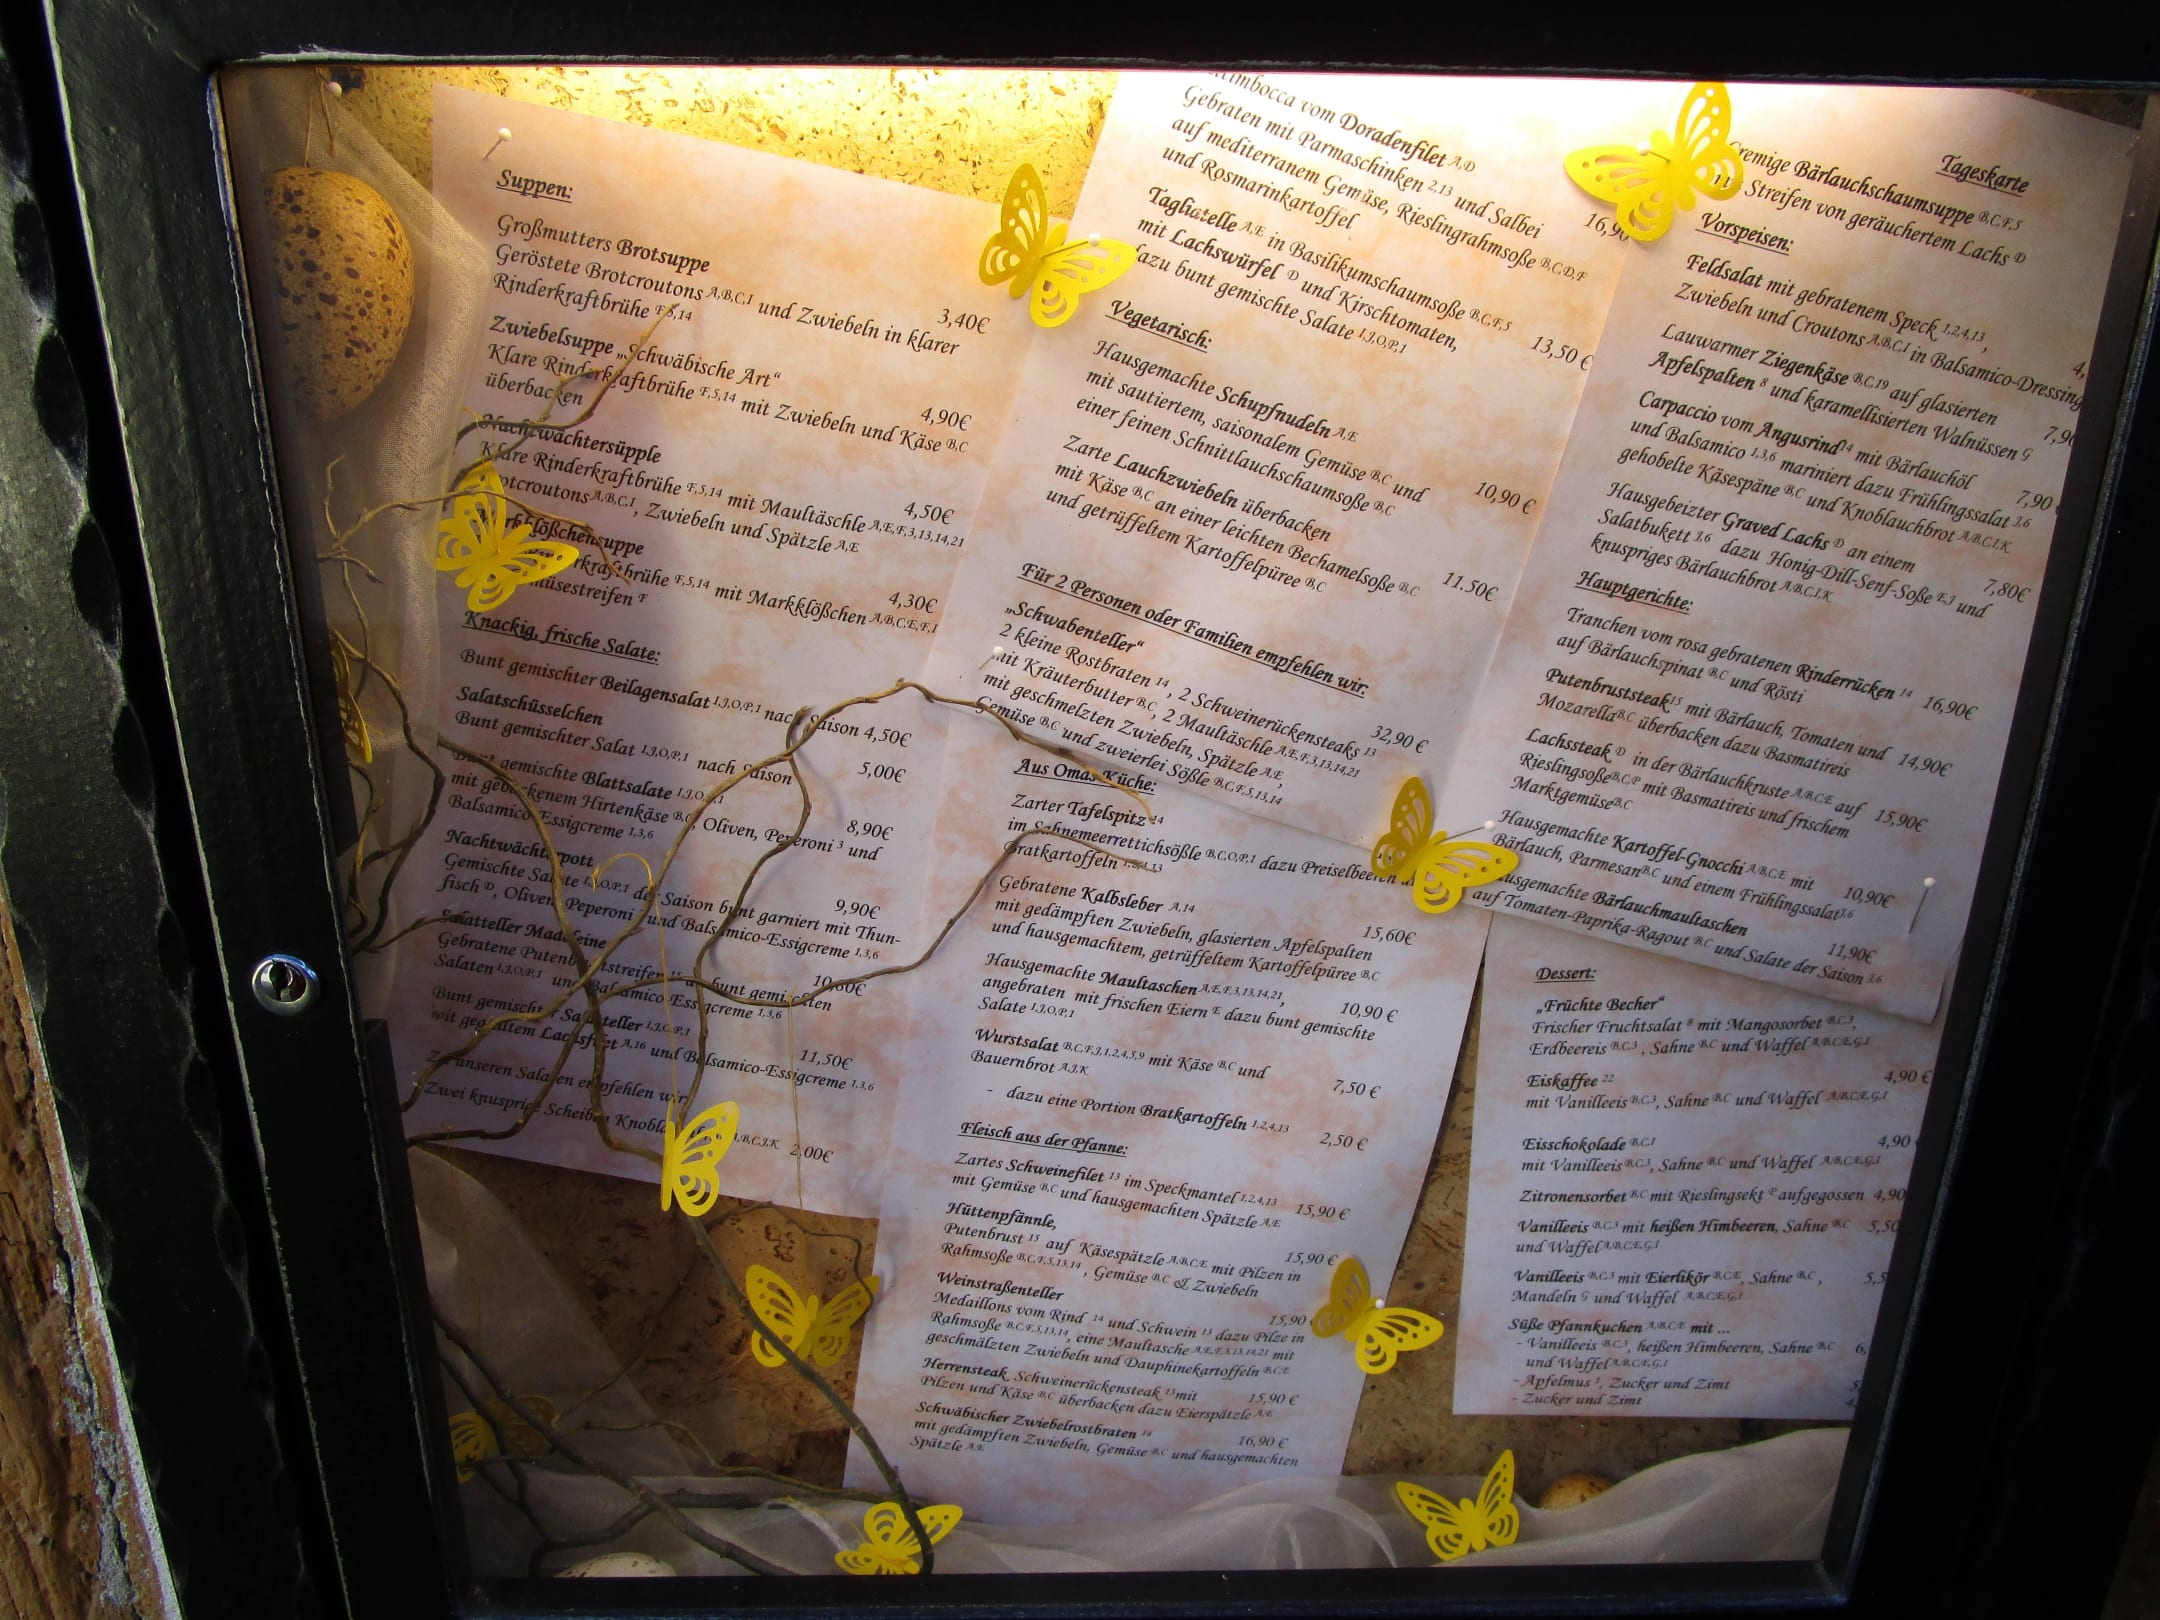 Suppen:
Großmutters Brotsuppe
3,40€
Geröstete Brotcroutons A,B,C,I und Zwiebeln in klarer
Rinderkraftbrühe F,5,14
Zwiebelsuppe „Schwäbische Art“
4,90€
Klare Rinderkraftbrühe F,5,14 mit Zwiebeln und Käse B,C
überbacken
Nachtwächtersüpple
4,50€
Klare Rinderkraftbrühe F,5,14 mit Maultäschle A,E,F,3,13,14,21
Brotcroutons A,B,C,I, Zwiebeln und Spätzle A,E
Markklößchensuppe
4,30€
Rinderkraftbrühe F,5,14 mit Markklößchen A,B,C,E,F,I
Gemüsestreifen F
Knackig, frische Salate:
Bunt gemischter Beilagensalat I,J,O,P,1 nach Saison 4,50€
Salatschüsselchen
5,00€
Bunt gemischter Salat I,J,O,P,1 nach Saison
Bunt gemischte Blattsalate I,J,O,P,1
8,90€
mit gebackenem Hirtenkäse B,C, Oliven, Peperoni 3 und
Balsamico Essigcreme 1,3,6
Nachtwächterpott
9,90€
Gemischte Salate I,J,O,P,1 der Saison bunt garniert mit Thun-
fisch D, Oliven, Peperoni und Balsamico-Essigcreme 1,3,6
Salatteller Madeleine
10,60€
Gebratene Putenbruststreifen 15 an bunt gemischten
Salaten I,J,O,P,1 und Balsamico Essigcreme 1,3,6
Bunt gemischter Salatteller I,J,O,P,1
11,50€
mit gegrilltem Lachsfilet A,16 und Balsamico-Essigcreme 1,3,6
Zu unseren Salaten empfehlen wir
Zwei knusprige Scheiben A,B,C,I,K 2,00€
vom Doradenfilet A,D
Gebraten mit Parmaschinken 2,13 und Salbei
16,90
auf mediterranem Gemüse, Rieslingrahmsoße B,C,D,F
und Rosmarinkartoffel
Tagliatelle A,E in Basilikumschaumsoße B,C,F,5
mit Lachswürfel D und Kirschtomaten,
13,50 €
dazu bunt gemischte Salate I,J,O,P,1
Vegetarisch:
Hausgemachte Schupfnudeln A,E
mit sautiertem, saisonalem Gemüse B,C und
10,90 €
einer feinen Schnittlauchschaumsoße B,C
Zarte Lauchzwiebeln überbacken
mit Käse B,C an einer leichten Bechamelsoße B,C
11.50€
und getrüffeltem Kartoffelpüree B,C
Für 2 Personen oder Familien empfehlen wir:
„Schwabenteller“
2 kleine Rostbraten 14, 2 Schweinerückensteaks 13
32,90 €
mit Kräuterbutter B,C, 2 Maultäschle A,E,F,3,13,14,21
mit geschmelzten Zwiebeln, Spätzle A,E,
Gemüse B,C und zweierlei Sößle B,C,F,5,13,14
Aus Omas Küche:
Zarter Tafelspitz 14
im Sahnemeerrettichsößle B,C,O,P,1 dazu Preiselbeeren
Bratkartoffeln 1,2,4,13
Gebratene Kalbsleber A,14
15,60€
mit gedämpften Zwiebeln, glasierten Apfelspalten
und hausgemachtem, getrüffeltem Kartoffelpüree B,C
Hausgemachte Maultaschen A,E,F,3,13,14,21,
10,90 €
angebraten mit frischen Eiern E dazu bunt gemischte
Salate I,J,O,P,1
Wurstsalat B,C,F,J,1,2,4,5,9 mit Käse B,C und
7,50 €
Bauernbrot A,J,K
- dazu eine Portion Bratkartoffeln 1,2,4,13 2,50 €
Fleisch aus der Pfanne:
Zartes Schweinefilet 13 im Speckmantel 1,2,4,13
15,90 €
mit Gemüse B,C und hausgemachten Spätzle A,E
Hüttenpfännle,
15,90 €
Putenbrust 15 auf Käsespätzle A,B,C,E mit Pilzen in
Rahmsoße B,C,F,5,13,14, Gemüse B,C & Zwiebeln
Weinstraßenteller
15,90
Medaillons vom Rind 14 und Schwein 13 dazu Pilze in
Rahmsoße B,C,F,5,13,14, eine Maultasche A,E,F,3,13,14,21 mit
geschmälzten Zwiebeln und Dauphinekartoffeln B,C,E
Herrensteak Schweinerückensteak 13 mit
15,90 €
Pilzen und Käse B,C überbacken dazu Eierspätzle A,E
Schwäbischer Zwiebelrostbraten 14
16,90 €
mit gedämpften Zwiebeln, Gemüse B,C und hausgemachten
Spätzle A,E
Tageskarte
Cremige Bärlauchschaumsuppe B,C,F,5
Streifen von geräuchertem Lachs D
Vorspeisen:
Feldsalat mit gebratenem Speck 1,2,4,13,
4,
Zwiebeln und Croutons A,B,C,I in Balsamico-Dressing
Lauwarmer Ziegenkäse B,C,19 auf glasierten
7,90
Apfelspalten 8 und karamellisierten Walnüssen G
Carpaccio vom Angusrind 14 mit Bärlauchöl
7,90
und Balsamico 1,3,6 mariniert dazu Frühlingssalat J,6
gehobelte Käsespäne B,C und Knoblauchbrot A,B,C,I,K
Hausgebeizter Graved Lachs D an einem
7,80€
Salatbukett J,6 dazu Honig-Dill-Senf-Soße E,J und
knuspriges Bärlauchbrot A,B,C,I,K
Hauptgerichte:
Tranchen vom rosa gebratenen Rinderrücken 14
16,90€
auf Bärlauchspinat B,C und Rösti
Putenbruststeak 15 mit Bärlauch, Tomaten und
14,90€
Mozarella B,C überbacken dazu Basmatireis
Lachssteak D in der Bärlauchkruste A,B,C,E auf
15,90€
Rieslingsoße B,C,P mit Basmatireis und frischem
Marktgemüse B,C
Hausgemachte Kartoffel-Gnocchi A,B,C,E mit
10,90€
Bärlauch, Parmesan B,C und einem Frühlingssalat J,6
Hausgemachte Bärlauchmaultaschen
11,90€
auf Tomaten-Paprika-Ragout B,C und Salate der Saison J,6
Dessert:
„Früchte Becher“
Frischer Fruchtsalat 8 mit Mangosorbet B,C,3,
Erdbeereis B,C,3, Sahne B,C und Waffel A,B,C,E,G,I
4,90 €
Eiskaffee 22
mit Vanilleeis B,C,3, Sahne B,C und Waffel A,B,C,E,G,I
4,90
Eisschokolade B,C,I
mit Vanilleeis B,C,3, Sahne B,C und Waffel A,B,C,E,G,I
Zitronensorbet B,C mit Rieslingsekt P aufgegossen 4,90
Vanilleeis B,C,3 mit heißen Himbeeren, Sahne B,C 5,50
und Waffel A,B,C,E,G,I
Vanilleeis B,C,3 mit Eierlikör B,C,E, Sahne B,C, 5,5
Mandeln G und Waffel A,B,C,E,G,I
Süße Pfannkuchen A,B,C,E mit ...
- Vanilleeis B,C,3, heißen Himbeeren, Sahne B,C 6,
und Waffel A,B,C,E,G,I
- Apfelmus 1, Zucker und Zimt
- Zucker und Zimt